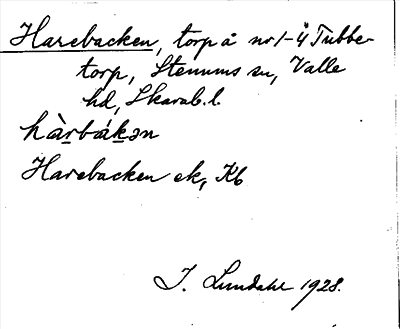 Harebacken, torp å nr 1-4 Tubbe-
torp, Stenums sn, Valle
hd, Skarab. l.
hàrbákən
Harebacken ek, Kb
I. Lundahl 1928.